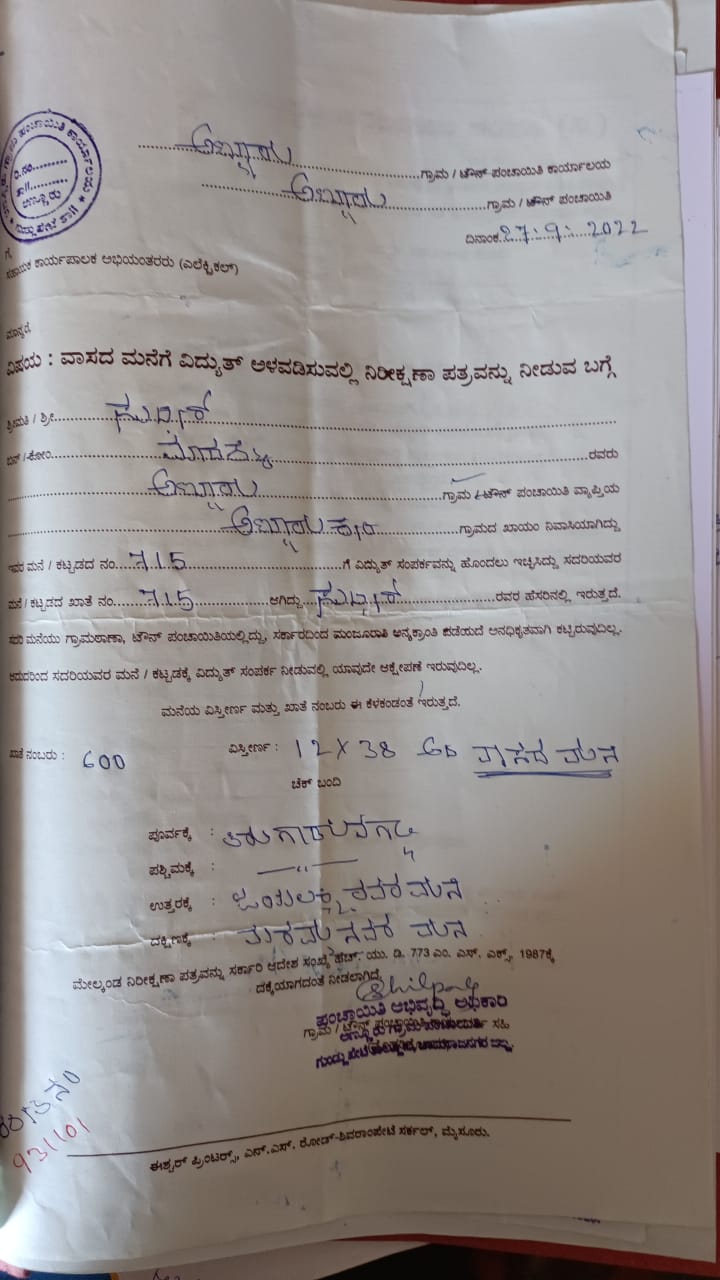 ಗ್ರಾಮ ಪಂಚಾಯಿತಿ ಕಾರ್ಯಾಲಯ
ಅಣ್ಣೂರು
............ಗ್ರಾಮ / ಟೌನ್ ಪಂಚಾಯಿತಿ ಕಾರ್ಯಾಲಯ
............ಗ್ರಾಮ / ಟೌನ್ ಪಂಚಾಯಿತಿ
ದಿನಾಂಕ 27.9.2022
ಗೆ,
ಸಹಾಯಕ ಕಾರ್ಯಪಾಲಕ ಅಭಿಯಂತರರು (ಎಲೆಕ್ಟ್ರಿಕಲ್)
ಮಾನ್ಯರೆ
ವಿಷಯ : ವಾಸದ ಮನೆಗೆ ವಿದ್ಯುತ್ ಅಳವಡಿಸುವಲ್ಲಿ ನಿರೀಕ್ಷಣಾ ಪತ್ರವನ್ನು ನೀಡುವ ಬಗ್ಗೆ
ಶ್ರೀಮತಿ / ಶ್ರೀ............
ಬಿನ್ / ಕೋಂ............ರವರು
............ಗ್ರಾಮ / ಟೌನ್ ಪಂಚಾಯಿತಿ ವ್ಯಾಪ್ತಿಯ
............ಗ್ರಾಮದ ಖಾಯಂ ನಿವಾಸಿಯಾಗಿದ್ದು
ಇವರ ಮನೆ / ಕಟ್ಟಡದ ನಂ. 715 ಗೆ ವಿದ್ಯುತ್ ಸಂಪರ್ಕವನ್ನು ಹೊಂದಲು ಇಚ್ಛಿಸಿದ್ದು ಸದರಿಯವರ
ಮನೆ / ಕಟ್ಟಡದ ಖಾತೆ ನಂ. 715 ಆಗಿದ್ದು............ರವರ ಹೆಸರಿನಲ್ಲಿ ಇರುತ್ತದೆ.
ಸದರಿ ಮನೆಯು ಗ್ರಾಮಠಾಣಾ, ಟೌನ್ ಪಂಚಾಯಿತಿಯಲ್ಲಿದ್ದು, ಸರ್ಕಾರದಿಂದ ಮಂಜೂರಾತಿ ಅನ್ಯಕ್ರಾಂತಿ ಪಡೆಯದೆ ಅನಧಿಕೃತವಾಗಿ ಕಟ್ಟಿರುವುದಿಲ್ಲ.
ಆದುದರಿಂದ ಸದರಿಯವರ ಮನೆ / ಕಟ್ಟಡಕ್ಕೆ ವಿದ್ಯುತ್ ಸಂಪರ್ಕ ನೀಡುವಲ್ಲಿ ಯಾವುದೇ ಆಕ್ಷೇಪಣೆ ಇರುವುದಿಲ್ಲ.
ಮನೆಯ ವಿಸ್ತೀರ್ಣ ಮತ್ತು ಖಾತೆ ನಂಬರು ಈ ಕೆಳಕಂಡಂತೆ ಇರುತ್ತದೆ.
ಖಾತೆ ನಂಬರು : 600 ವಿಸ್ತೀರ್ಣ : 12 X 38 ಅಡಿ ವಾಸದ ಮನೆ
ಚೆಕ್ ಬಂದಿ
ಪೂರ್ವಕ್ಕೆ :
ಪಶ್ಚಿಮಕ್ಕೆ : —"—
ಉತ್ತರಕ್ಕೆ : ಜಯಲಕ್ಷ್ಮಿರವರ ಮನೆ
ದಕ್ಷಿಣಕ್ಕೆ : ಮನೆ
ಮೇಲ್ಕಂಡ ನಿರೀಕ್ಷಣಾ ಪತ್ರವನ್ನು ಸರ್ಕಾರಿ ಆದೇಶ ಸಂಖ್ಯೆ ಹೆಚ್. ಯು. ಡಿ. 773 ಎಂ. ಎಸ್. ಎಕ್ಸ್. 1987ಕ್ಕೆ
ದಕ್ಕೆಯಾಗದಂತೆ ನೀಡಲಾಗಿದೆ.
ಪಂಚಾಯಿತಿ ಅಭಿವೃದ್ಧಿ ಅಧಿಕಾರಿ
ಗ್ರಾಮ / ಟೌನ್ ಪಂಚಾಯಿತಿ ಸಹಿ
931101
ಈಶ್ವರ್ ಪ್ರಿಂಟರ್ಸ್, ಎನ್.ಎಸ್. ರೋಡ್-ಶಿವರಾಂಪೇಟೆ ಸರ್ಕಲ್, ಮೈಸೂರು.